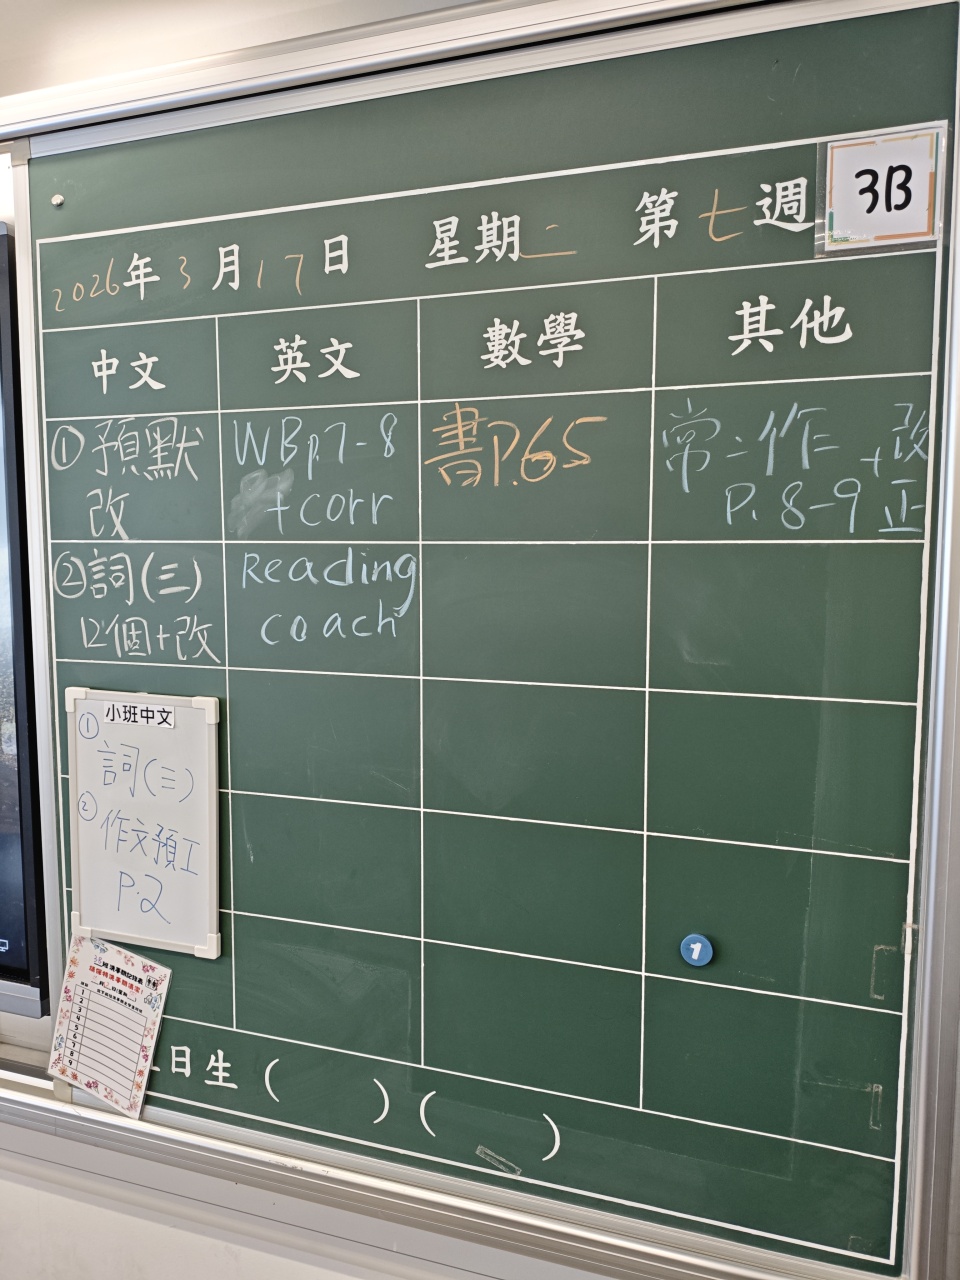 3B
2026年3月17日 星期二 第七週
中文 英文 數學 其他
①預默
改
WB p.7-8
+corr
書P.65
常:作 +改
P. 8-9 正
②詞(三)
12個+改
Reading
coach
小班中文
①
詞(三)
②
作文預工
P.2
日生 ( ) ( )
1
1
2
3
4
5
6
7
8
9